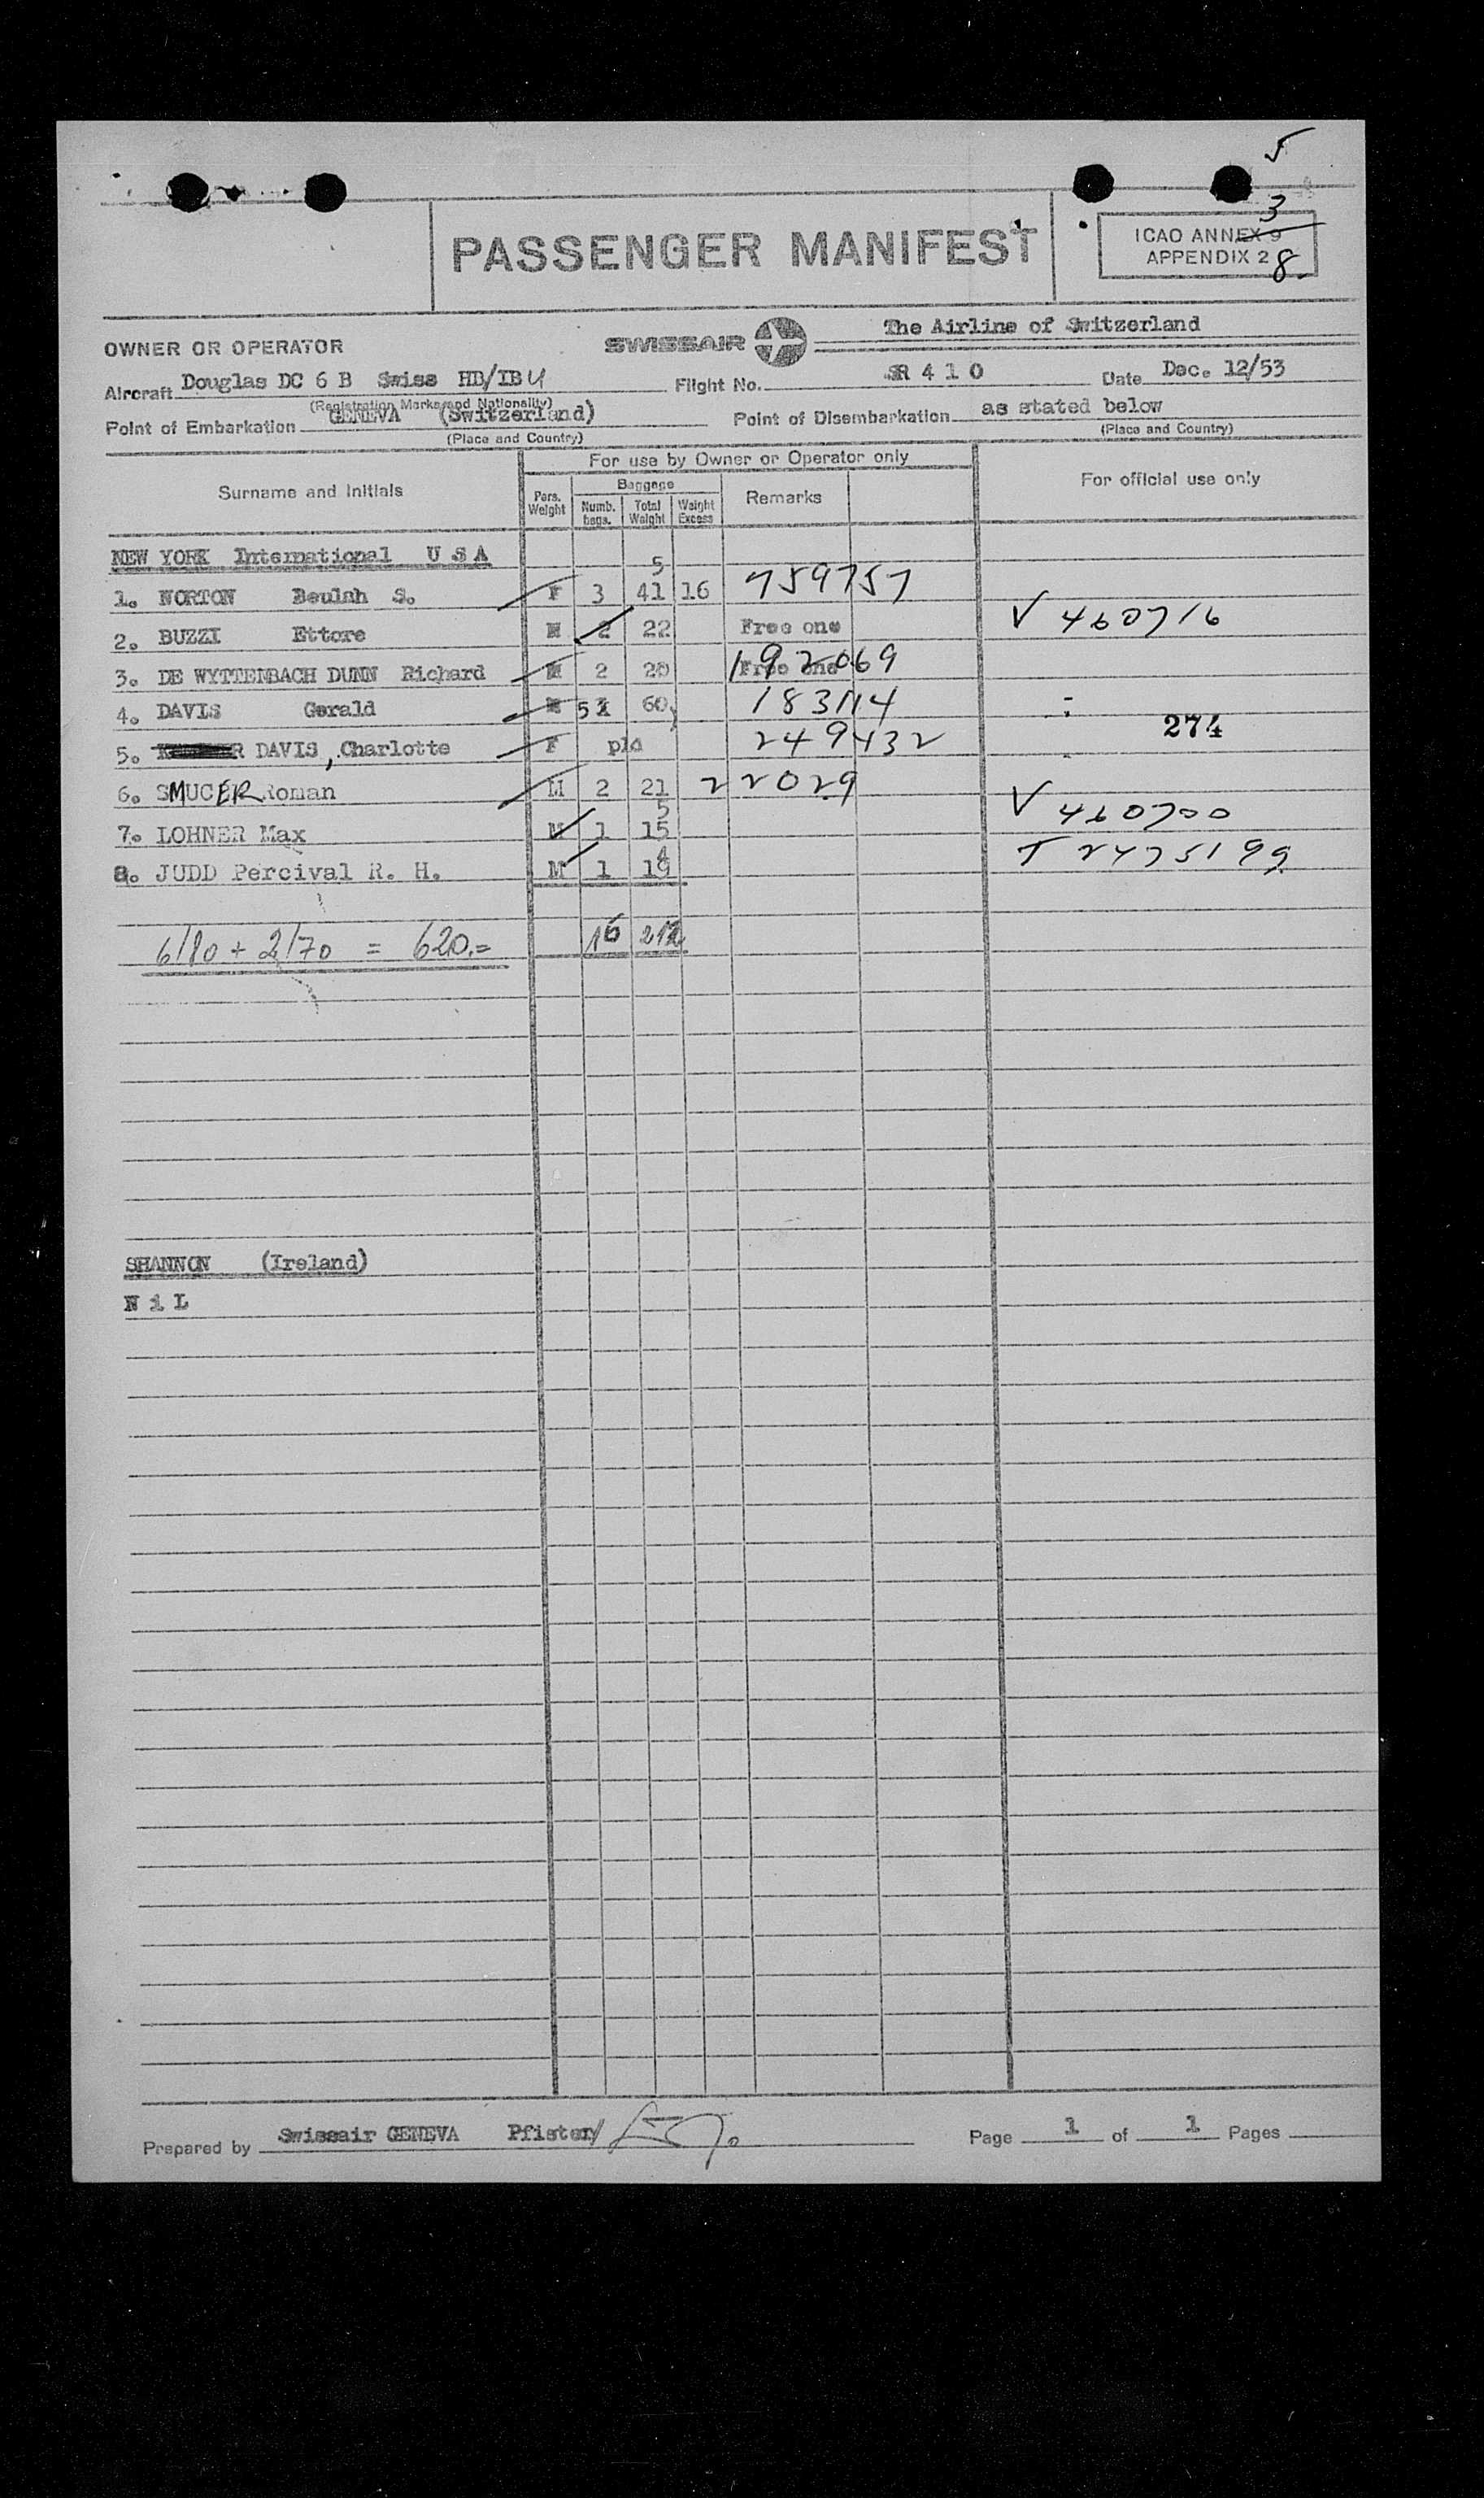 5
3
PASSENGER MANIFEST
ICAO ANNEX 9
APPENDIX 2 8
OWNER OR OPERATOR SWISSAIR The Airline of Switzerland
Aircraft Douglas DC 6 B Swiss HB/IBU Flight No. SR 4 1 0 Date Dec. 12/53
(Registration Marks and Nationality)
Point of Embarkation GENEVA (Switzerland) Point of Disembarkation as stated below
(Place and Country) (Place and Country)
For use by Owner or Operator only
Surname and Initials Pers. Weight Baggage Numb. bags. Total Weight Weight Excess Remarks For official use only
NEW YORK International U S A
5
1. NORTON Beulah S. F 3 41 16 759757
2. BUZZI Ettore M 2 22 Free one V 460716
3. DE WYTTENBACH DUNN Richard M 2 20 Free one 192069
4. DAVIS Gerald M 5 60 183114
5. DAVIS, Charlotte F pld 249432 274
6. SMUCER Roman M 2 21 22029
5
7. LOHNER Max M 1 15 V 460700
4
8. JUDD Percival R. H. M 1 19 T 2475199
6/80 + 2/70 = 620.= 16 212
SHANNON (Ireland)
N i L
Prepared by Swissair GENEVA Pfister/ Page 1 of 1 Pages